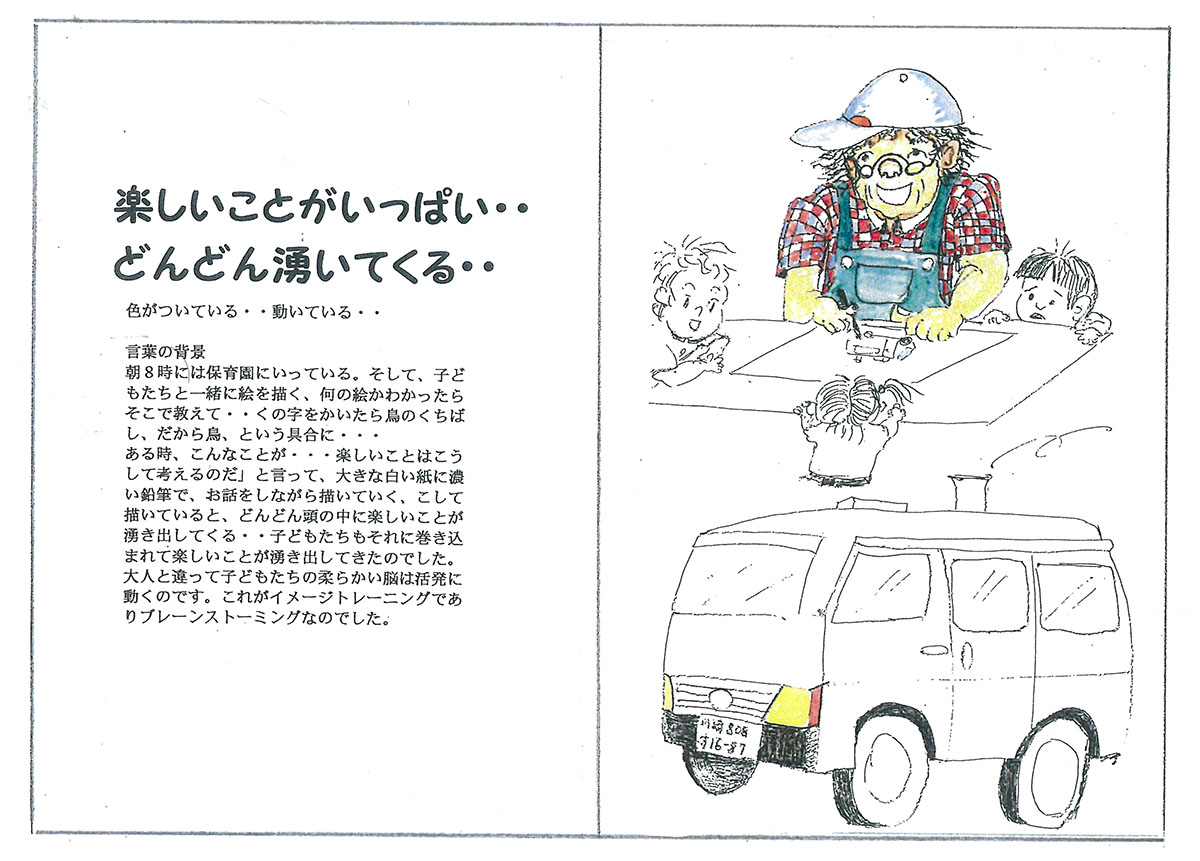 楽しいことがいっぱい・・
どんどん湧いてくる・・
色がついている・・動いている・・
言葉の背景
朝８時には保育園にいっている。そして、子ど
もたちと一緒に絵を描く、何の絵かわかったら
そこで教えて・・くの字をかいたら鳥のくちば
し、だから鳥、という具合に・・・
ある時、こんなことが・・・楽しいことはこう
して考えるのだ」と言って、大きな白い紙に濃
い鉛筆で、お話をしながら描いていく、こして
描いていると、どんどん頭の中に楽しいことが
湧き出してくる・・子どもたちもそれに巻き込
まれて楽しいことが湧き出してきたのでした。
大人と違って子どもたちの柔らかい脳は活発に
動くのです。これがイメージトレーニングであ
りブレーンストーミングなのでした。
川崎 508
す16-87